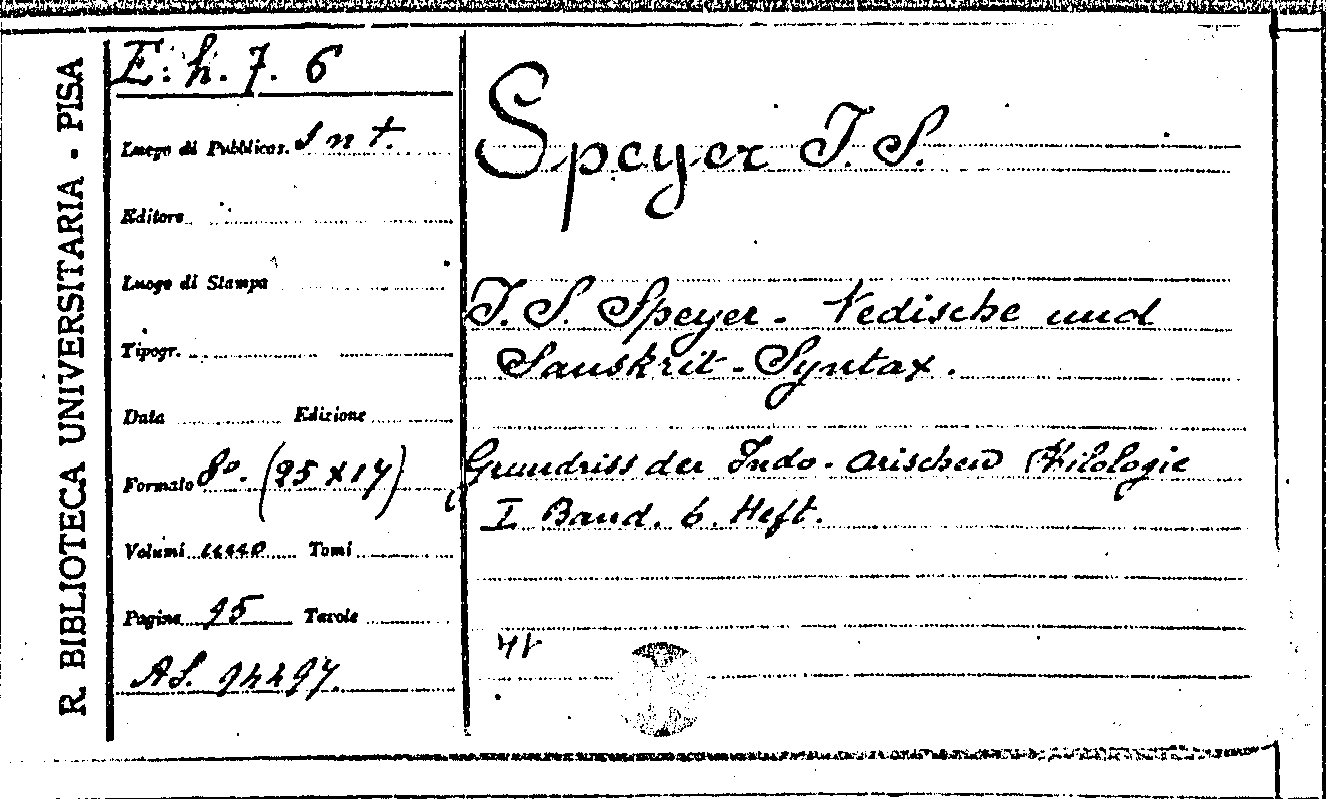 R. BIBLIOTECA UNIVERSITARIA - PISA
E. h. 7. 6
Luogo di Pubblicaz. Snt.
Editore
Luogo di Stampa
Tipogr.
Data Edizione
Formato 8º. (25 x 17)
Volumi uno Tomi
Pagine 95 Tavole
Speyer J. S.
J. S. Speyer - Vedische und
Sanskrit - Syntax.
Grundriss der Indo-arischen Philologie
I Band. 6. Heft.